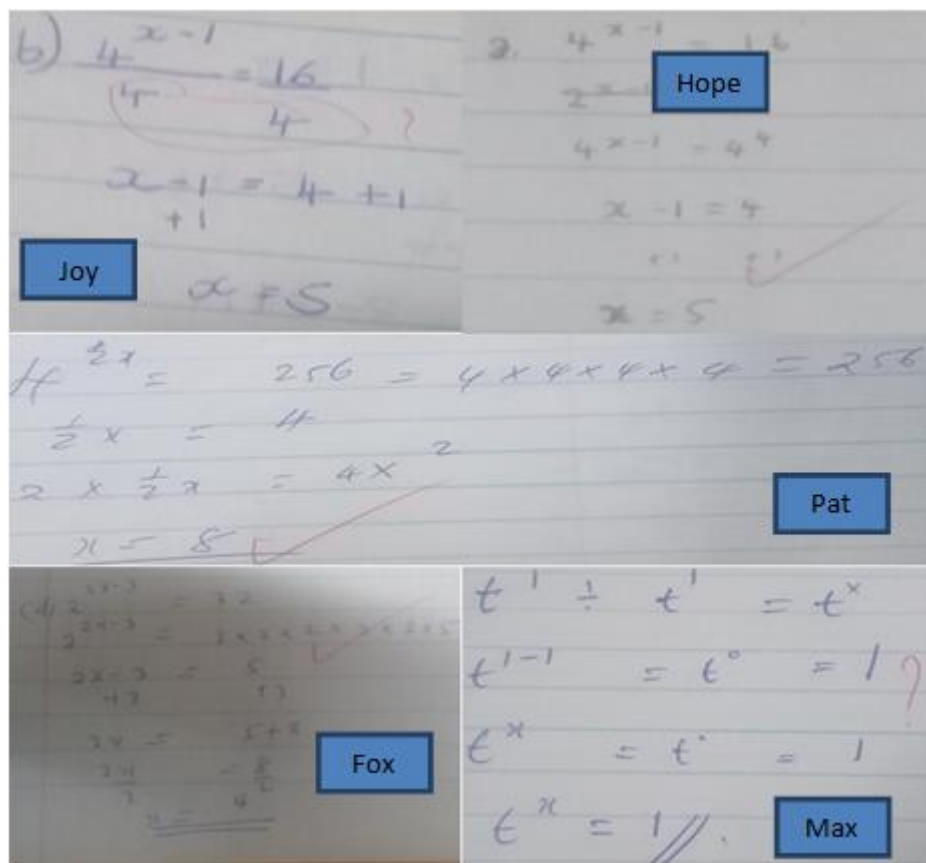 b) 4^(x-1)/4 = 16/4 ?
x - 1 = 4 + 1
+ 1
Joy
x = 5
a. 4^(x-1) = 16
Hope
4^(x-1) = 4^4
x - 1 = 4
+1 +1
x = 5
= 256 = 4 × 4 × 4 × 4 = 256
1/2 x = 4
2 × 1/2 x = 4 × 2
Pat
x = 8
(d) 2^(2x-3) = 32
2^(2x-3) =
2x-3 = 5
+3 +3
2x = 5+3
Fox
t^1 ÷ t^1 = t^x
t^(1-1) = t^0 = 1 ?
t^x = t^0 = 1
t^x = 1 //.
Max